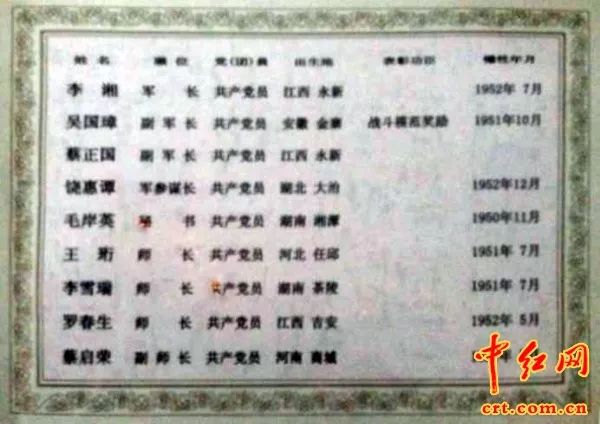 姓名 职位 党(团)员 出生地 表彰功臣 牺牲年月
李湘 军长 共产党员 江西 永新 1952年 7月
吴国璋 副军长 共产党员 安徽 金寨 战斗模范奖励 1951年10月
蔡正国 副军长 共产党员 江西 永新
饶惠谭 军参谋长 共产党员 湖北 大冶 1952年12月
毛岸英 秘书 共产党员 湖南 湘潭 1950年11月
王珩 师长 共产党员 河北 任邱 1951年 7月
李雪瑞 师长 共产党员 湖南 茶陵 1951年 7月
罗春生 师长 共产党员 江西 吉安 1952年 5月
蔡启荣 副师长 共产党员 河南 商城 年 月
中红网
crt.com.cn